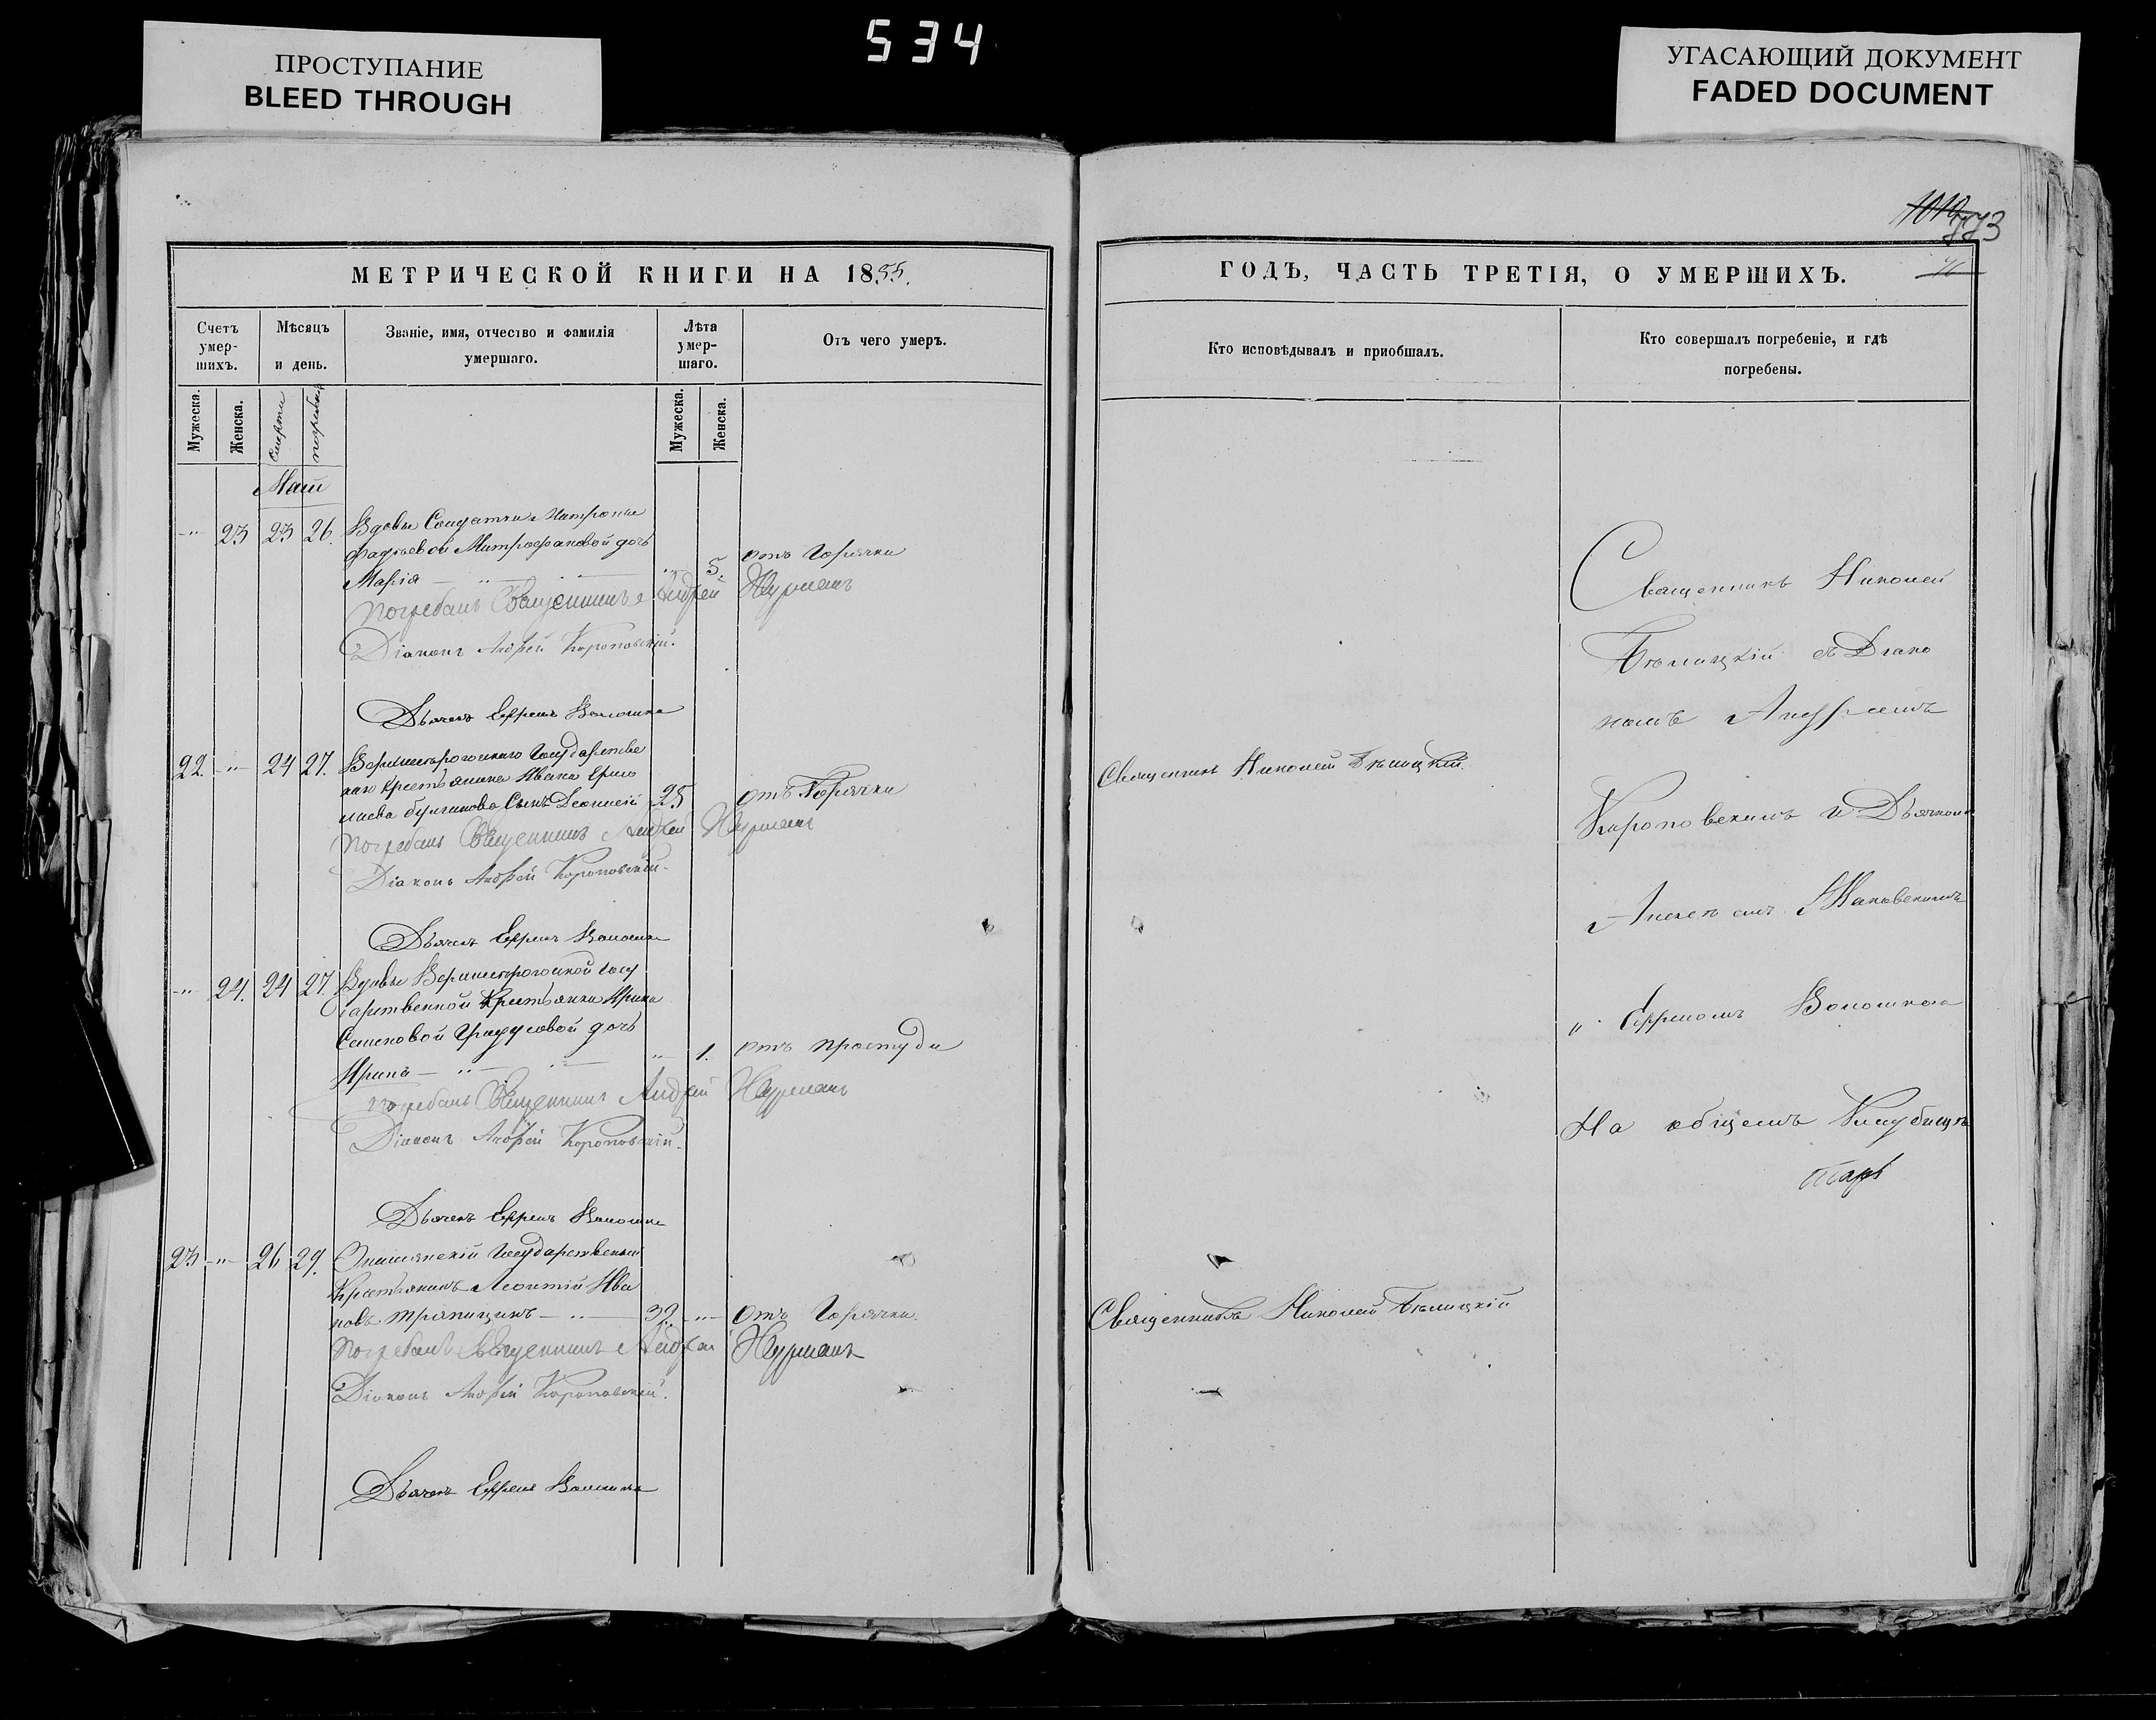 534
ПРОСТУПАНИЕ
BLEED THROUGH
УГАСАЮЩИЙ ДОКУМЕНТ
FADED DOCUMENT
1010
773
МЕТРИЧЕСКОЙ КНИГИ НА 1855.
Счетъ умер-шихъ.
Мѣсяцъ и день.
Званіе, имя, отчество и фамилія умершаго.
Лѣта умер-шаго.
Отъ чего умеръ.
Мужеска.
Женска.
Смерти
погребенія
Мужеска.
Женска.
Маій
-"- 23 23 26. Вдовы Солдатки Матроны
Фадѣевой Митрофановой дочь
Марія — " — " — 5. отъ Горячки
Погребалъ Священникъ Андрей Нурманъ
Діаконъ Андрей Короповскій.
Дьячекъ Ефремъ Волошка
22. -"- 24 27. Государстве
Крестьянина Ивана Ермо
лаева Сынъ 25 отъ Горячки
Погребалъ Священникъ Андрей Нурманъ
Діаконъ Андрей Короповскій.
Дьячекъ Ефремъ Волошка
-"- 24. 24 27. Вдовы Госу
дарственной Крестьянки Ирины
Семеновой дочь
Ирина — " — " — " — 1. отъ простуды
Погребалъ Священникъ Андрей Нурманъ
Діаконъ Андрей Короповскій.
Дьячекъ Ефремъ Волошка
23 -"- 26 29. Государственный
Крестьянинъ Леонтій Ива
новъ Тряпицынъ — " — 39. -"- отъ Горячки.
Погребалъ Священникъ Андрей Нурманъ
Діаконъ Андрей Короповскій.
Дьячекъ Ефремъ Волошка
ГОДЪ, ЧАСТЬ ТРЕТІЯ, О УМЕРШИХЪ.
Кто исповѣдывалъ и приобщалъ.
Кто совершалъ погребеніе, и гдѣ погребены.
Священникъ Николай Бѣлицкій.
Священникъ Николай Бѣлицкій
Священникъ Николай
Бѣлицкій съ Діако
номъ Андреемъ
Короповскимъ и Дьячкомъ
Маковскимъ
и Ефремомъ Волошкою
На общемъ Кладбищѣ